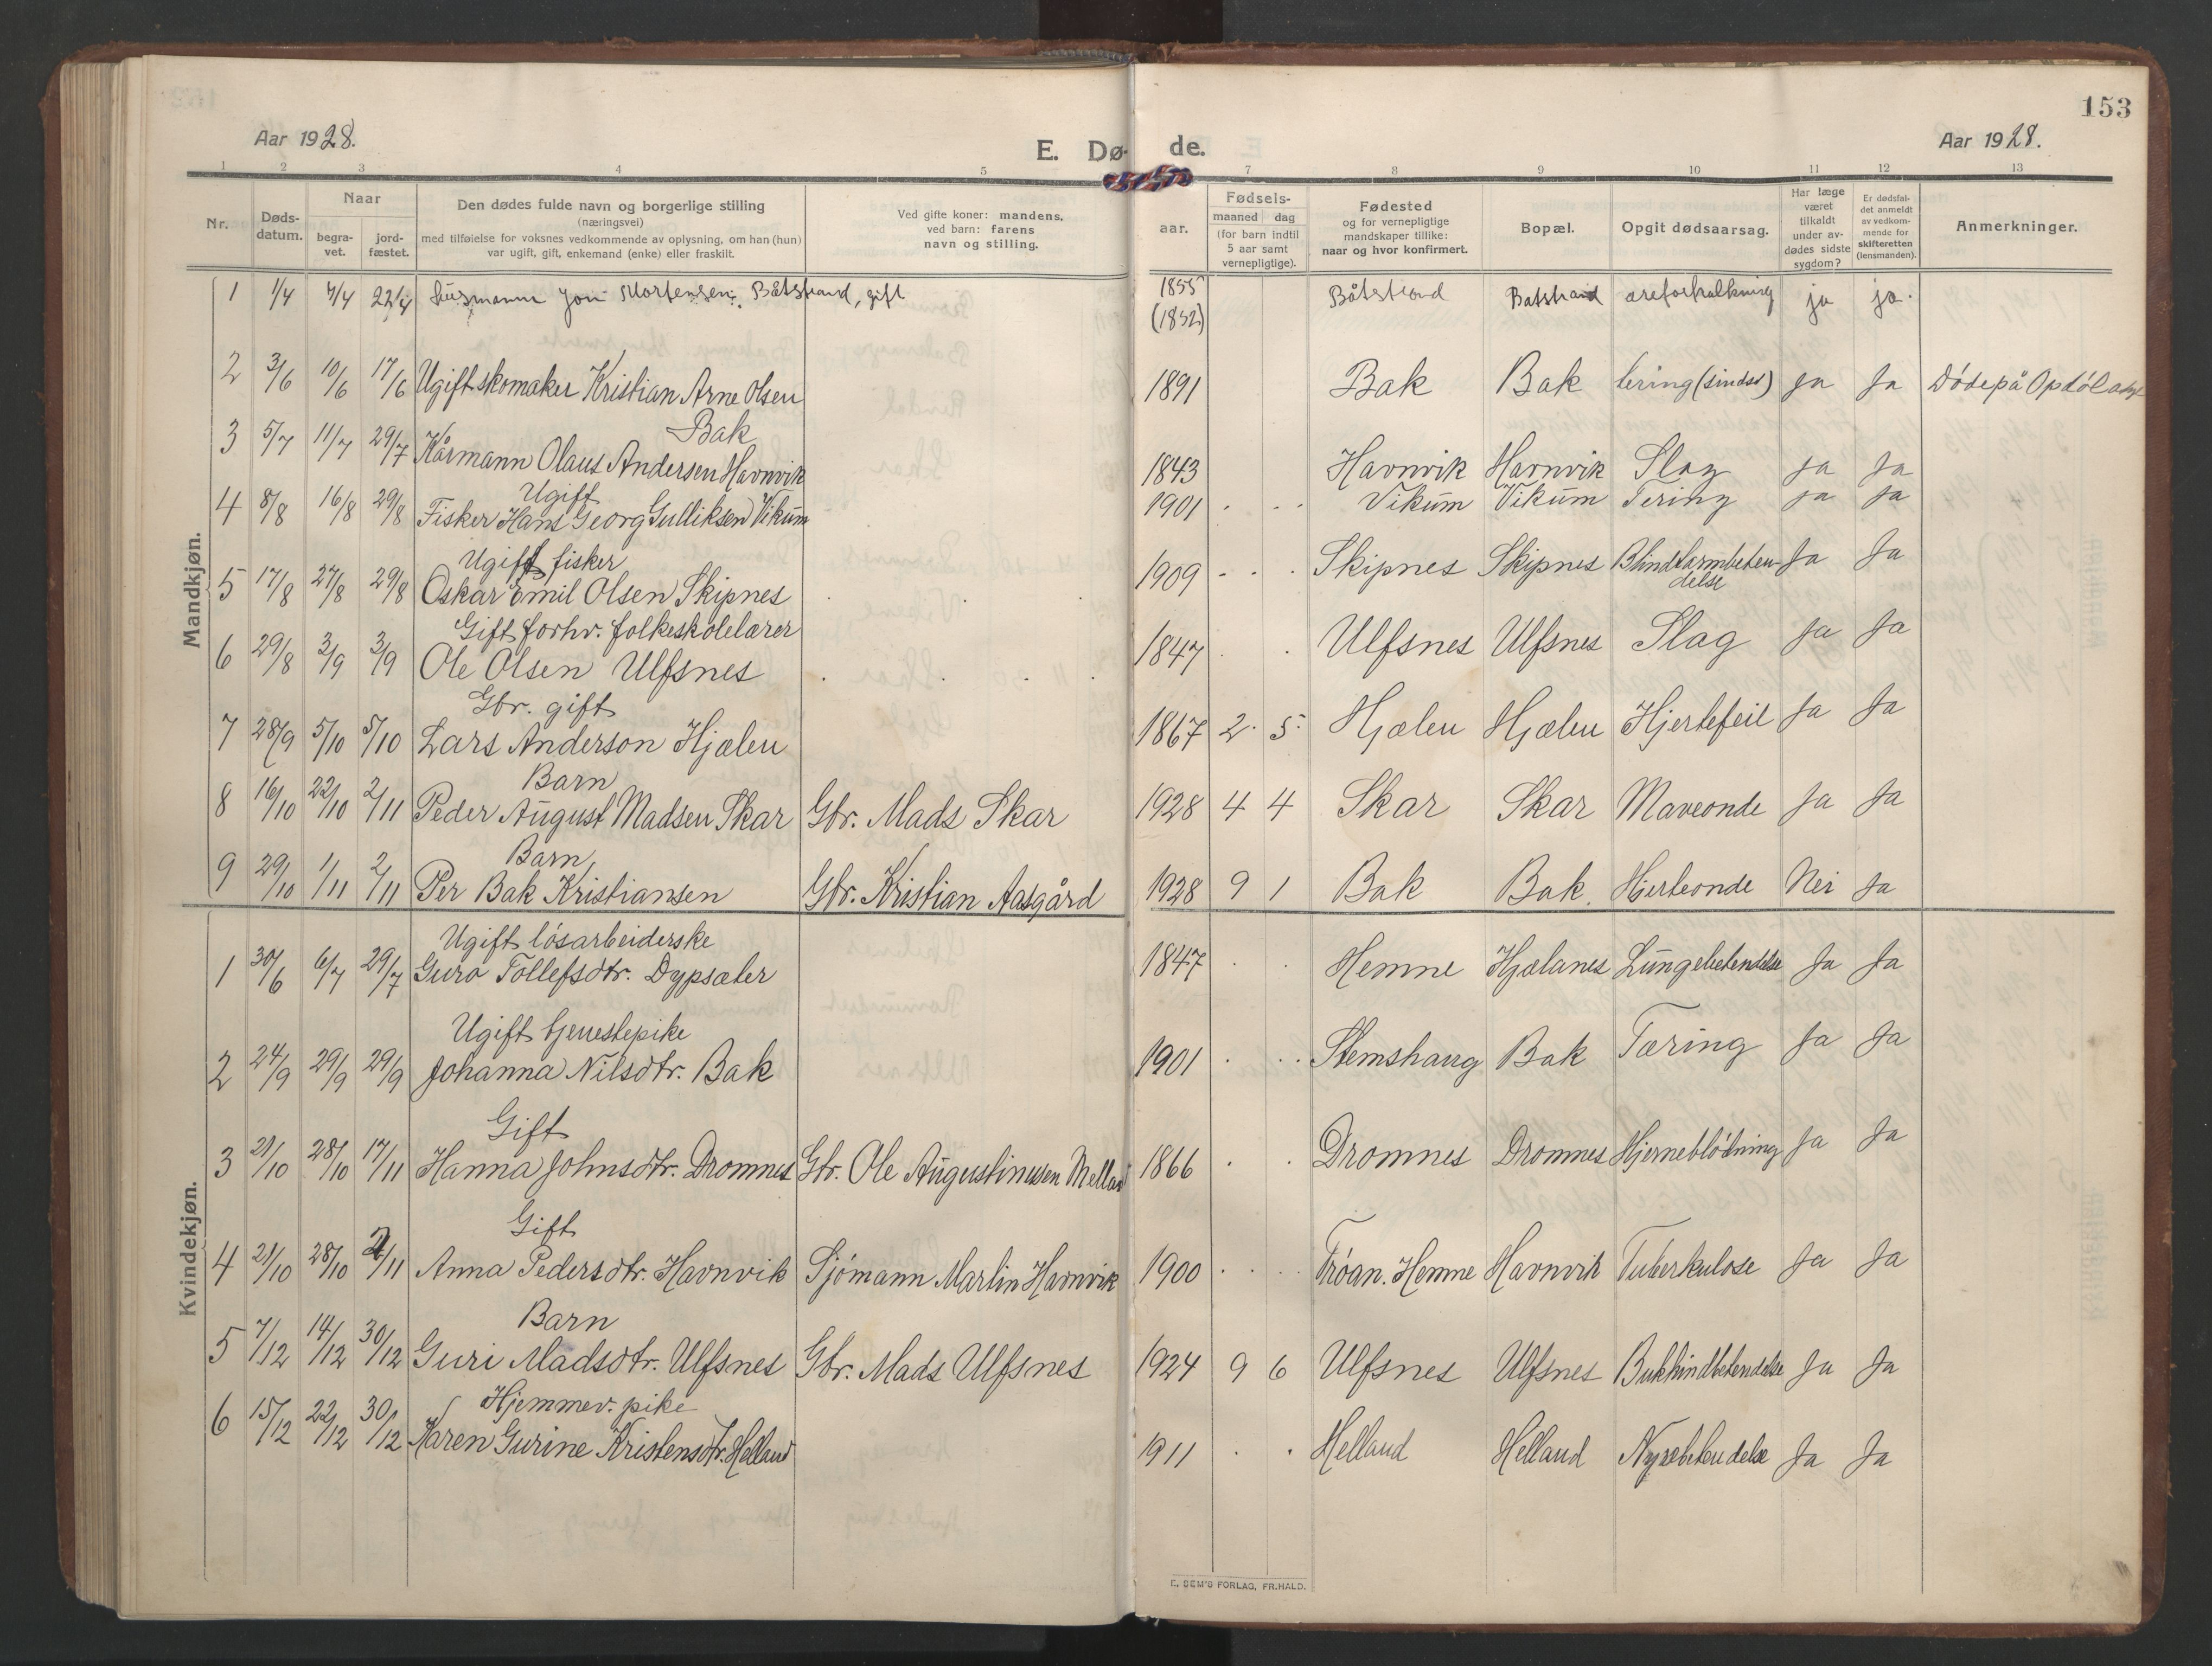 153
Aar 1928.
E. Dø- de.
Aar 1928.
1 2 3 4 5 7 8 9 10 11 12 13
Nr.
Døds-
datum.
Naar
begra-
vet.
jord-
fæstet.
Den dødes fulde navn og borgerlige stilling
(næringsvei)
med tilføielse for voksnes vedkommende av oplysning, om han (hun)
var ugift, gift, enkemand (enke) eller fraskilt.
Ved gifte koner: mandens,
ved barn: farens
navn og stilling.
aar.
Fødsels-
maaned dag
(for barn indtil
5 aar samt
vernepligtige).
Fødested
og for vernepligtige
mandskaper tillike:
naar og hvor konfirmert.
Bopæl.
Opgit dødsaarsag.
Har læge
været
tilkaldt
under av-
dødes sidste
sygdom?
Er dødsfal-
det anmeldt
av vedkom-
mende for
skifteretten
(lensmanden).
Anmerkninger.
Mandkjøn.
1 1/4 4/4 22/4 Husmann Jon Mortensen, Båtstrand, gift 1855 Båtstrand Batstrand areforkalkning ja ja.
(1852)
2 3/6 10/6 17/6 Ugift skomaker Kristian Arne Olsen 1891 Bak Bak tering (sindss) ja Ja Döde på Opdöl asyl
Bak
3 5/7 11/7 29/7 Kårmann Olaus Andersen Havnvik 1843 Havnvik Havnvik Slag ja Ja
Ugift
4 8/8 16/8 29/8 Fisker Hans Georg Gulliksen Vikum 1901 Vikum Vikum Tering ja Ja
Ugift fisker
5 17/8 27/8 29/8 Oskar Emil Olsen Skipnes 1909 Skipnes Skipnes Blindtarmbeten- Ja Ja
delse
Gift forhv. folkeskolelærer
6 29/8 3/9 3/9 Ole Olsen Ulfsnes 1847 Ulfsnes Ulfsnes Slag Ja Ja
Gbr. gift
7 28/9 5/10 5/10 Lars Anderson Hjælen 1867 2. 5. Hjælen Hjælen Hjertefeil Ja Ja
Barn
8 16/10 22/10 2/11 Peder August Madsen Skar Gbr. Mads Skar 1928 4 4 Skar Skar Maveonde Ja Ja
Barn
9 29/10 1/11 2/11 Per Bak Kristiansen Gbr. Kristian Aasgård 1928 9 1 Bak Bak. Hjerteonde Nei Ja
Kvindekjøn.
Ugift lösarbeiderske
1 30/6 6/7 29/7 Guro Tollefsdtr. Dypsæter 1847 Hemne Hjælanes Lungebetendelse Ja Ja
Ugift tjenestepike
2 24/9 29/9 29/9 Johanna Nilsdtr. Bak 1901 Stemshaug Bak Tæring Ja Ja
Gift
3 21/10 28/10 17/11 Hanna Johnsdtr. Dromnes Gbr. Ole Augustinussen Melland 1866 Dromnes Dromnes Hjerneblödning Ja Ja
Gift
4 21/10 28/10 2/11 Anna Pedersdtr. Havnvik Sjömann Martin Havnvik 1900 Tröan. Hemne Havnvik Tuberkulose Ja Ja
Barn
5 7/12 14/12 30/12 Guri Madsdtr. Ulfsnes Gbr. Mads Ulfsnes 1924 9 6 Ulfsnes Ulfsnes Bukhindbetendelse Ja Ja
Hjemmev. pike
6 15/12 22/12 30/12 Karen Gurine Kristensdtr. Helland 1911 Helland Helland Nyrebetendelse Ja Ja
E. SEM'S FORLAG, FR.HALD.